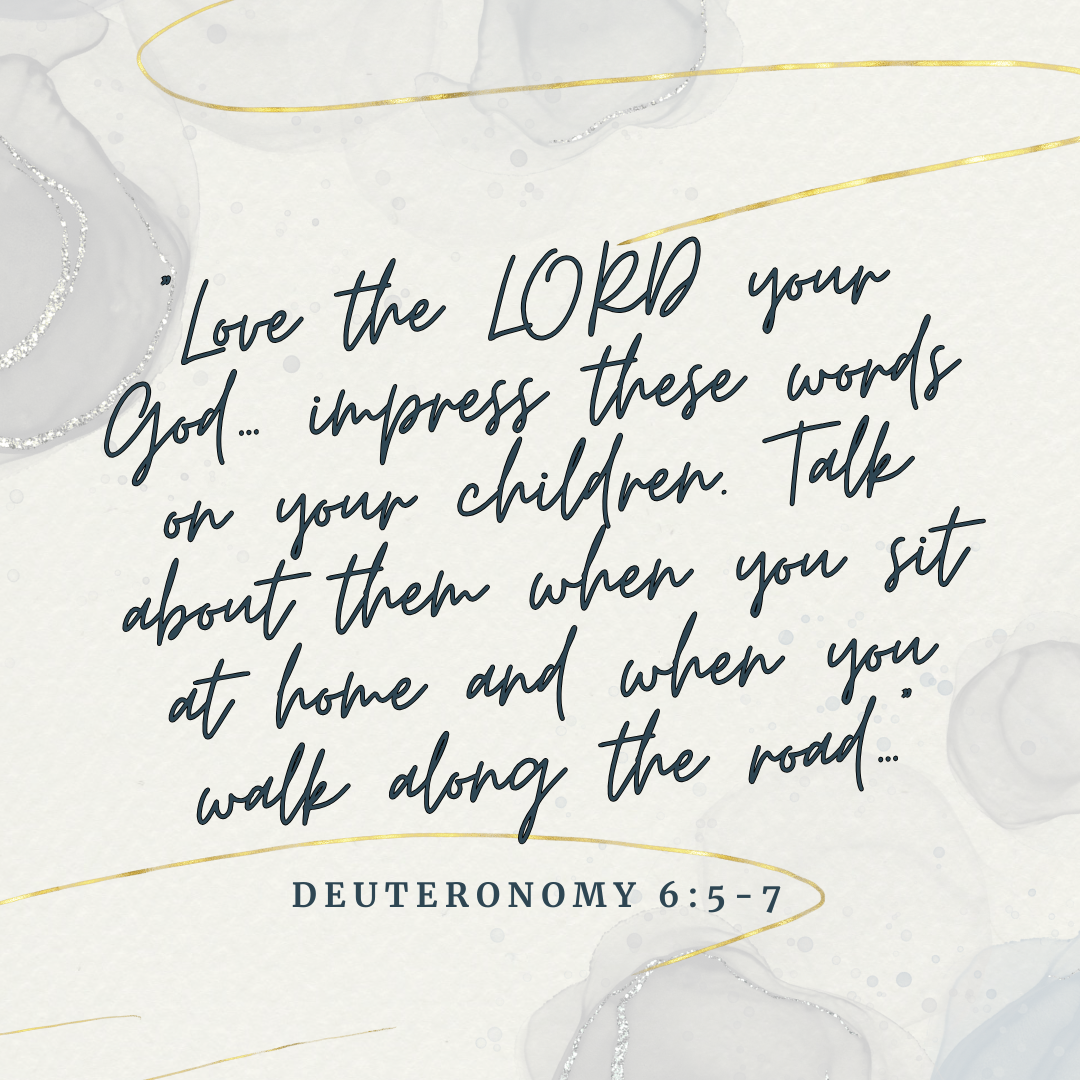 "Love the LORD your
God... impress these words
on your children. Talk
about them when you sit
at home and when you
walk along the road..."
DEUTERONOMY 6:5-7